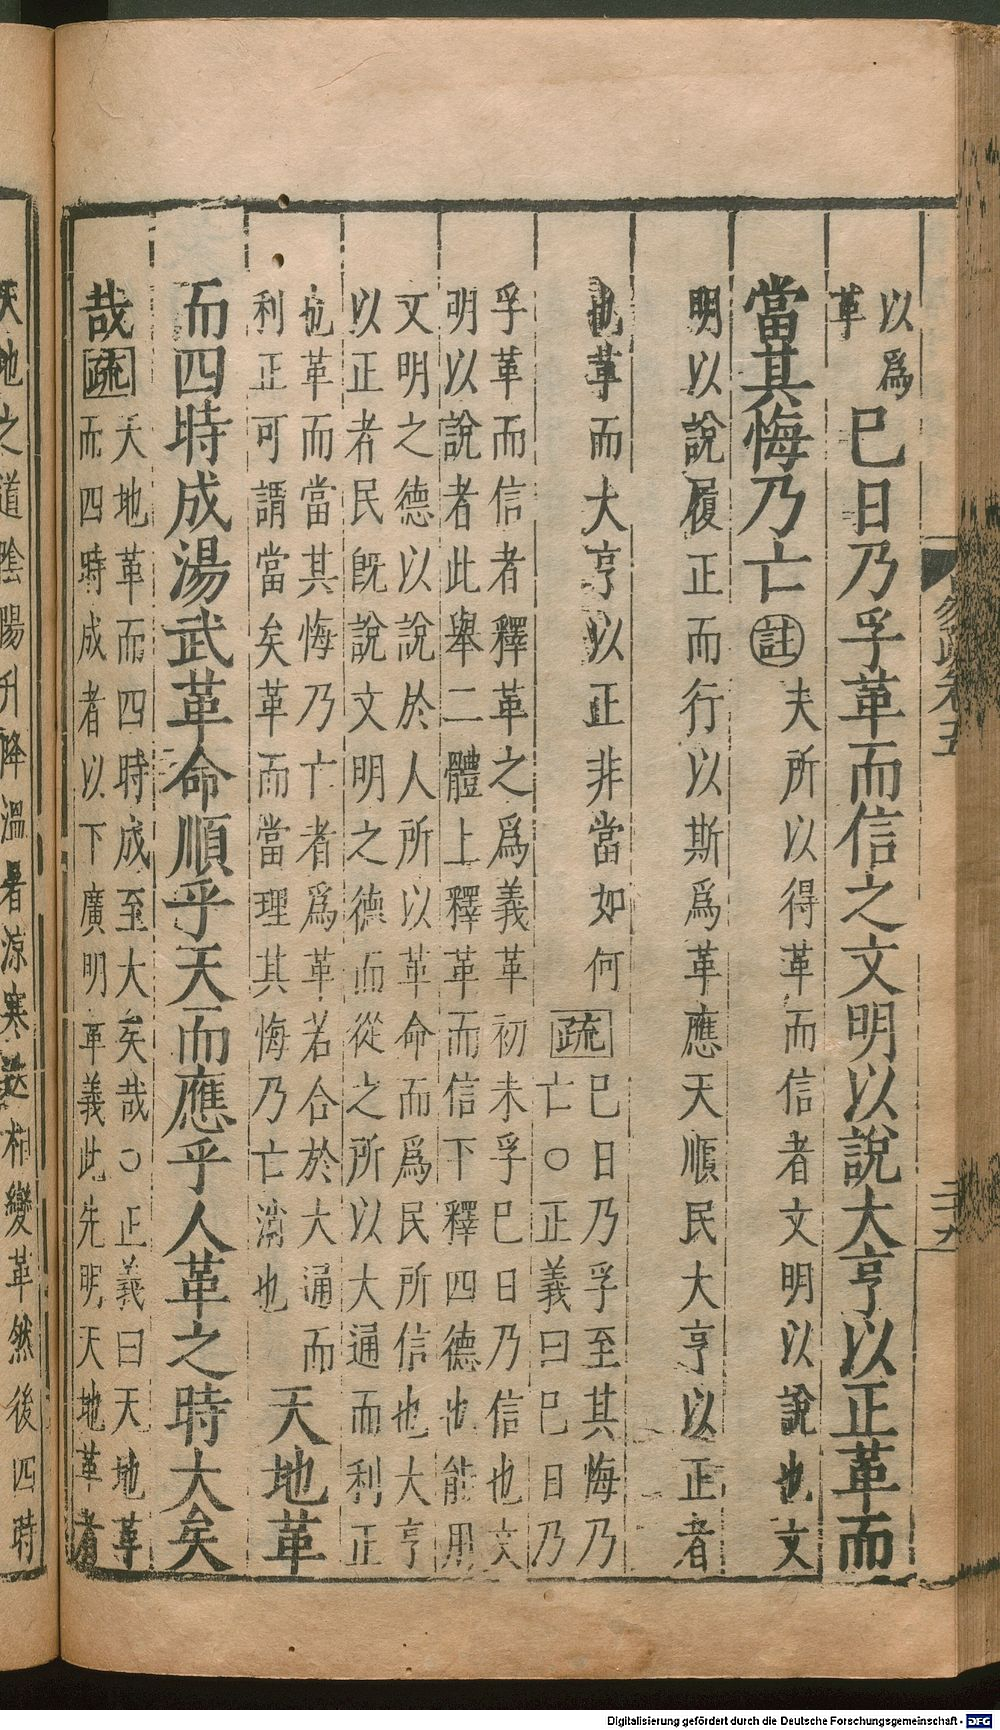 以爲
革
巳日乃孚革而信之文明以說大亨以正革而
當其悔乃亡註夫所以得革而信者文明以說也文
明以說履正而行以斯爲革應天順民大亨以正者
也革而大亨以正非當如何疏巳日乃孚至其悔乃
亡○正義曰巳日乃
孚革而信者釋革之爲義革初未孚巳日乃信也文
明以說者此舉二體上釋革而信下釋四德也能用
文明之德以說於人所以革命而爲民所信也大亨
以正者民既說文明之德而從之所以大通而利正
也革而當其悔乃亡者爲革若合於大通而
利正可謂當矣革而當理其悔乃亡消也
天地革
而四時成湯武革命順乎天而應乎人革之時大矣
哉疏天地革而四時成至大矣哉○正義曰天地革
而四時成者以下廣明革義此先明天地革者
天地之道陰陽升降溫暑涼寒迭相變革然後四時
易疏卷五
二十九
Digitalisierung gefördert durch die Deutsche Forschungsgemeinschaft - DFG